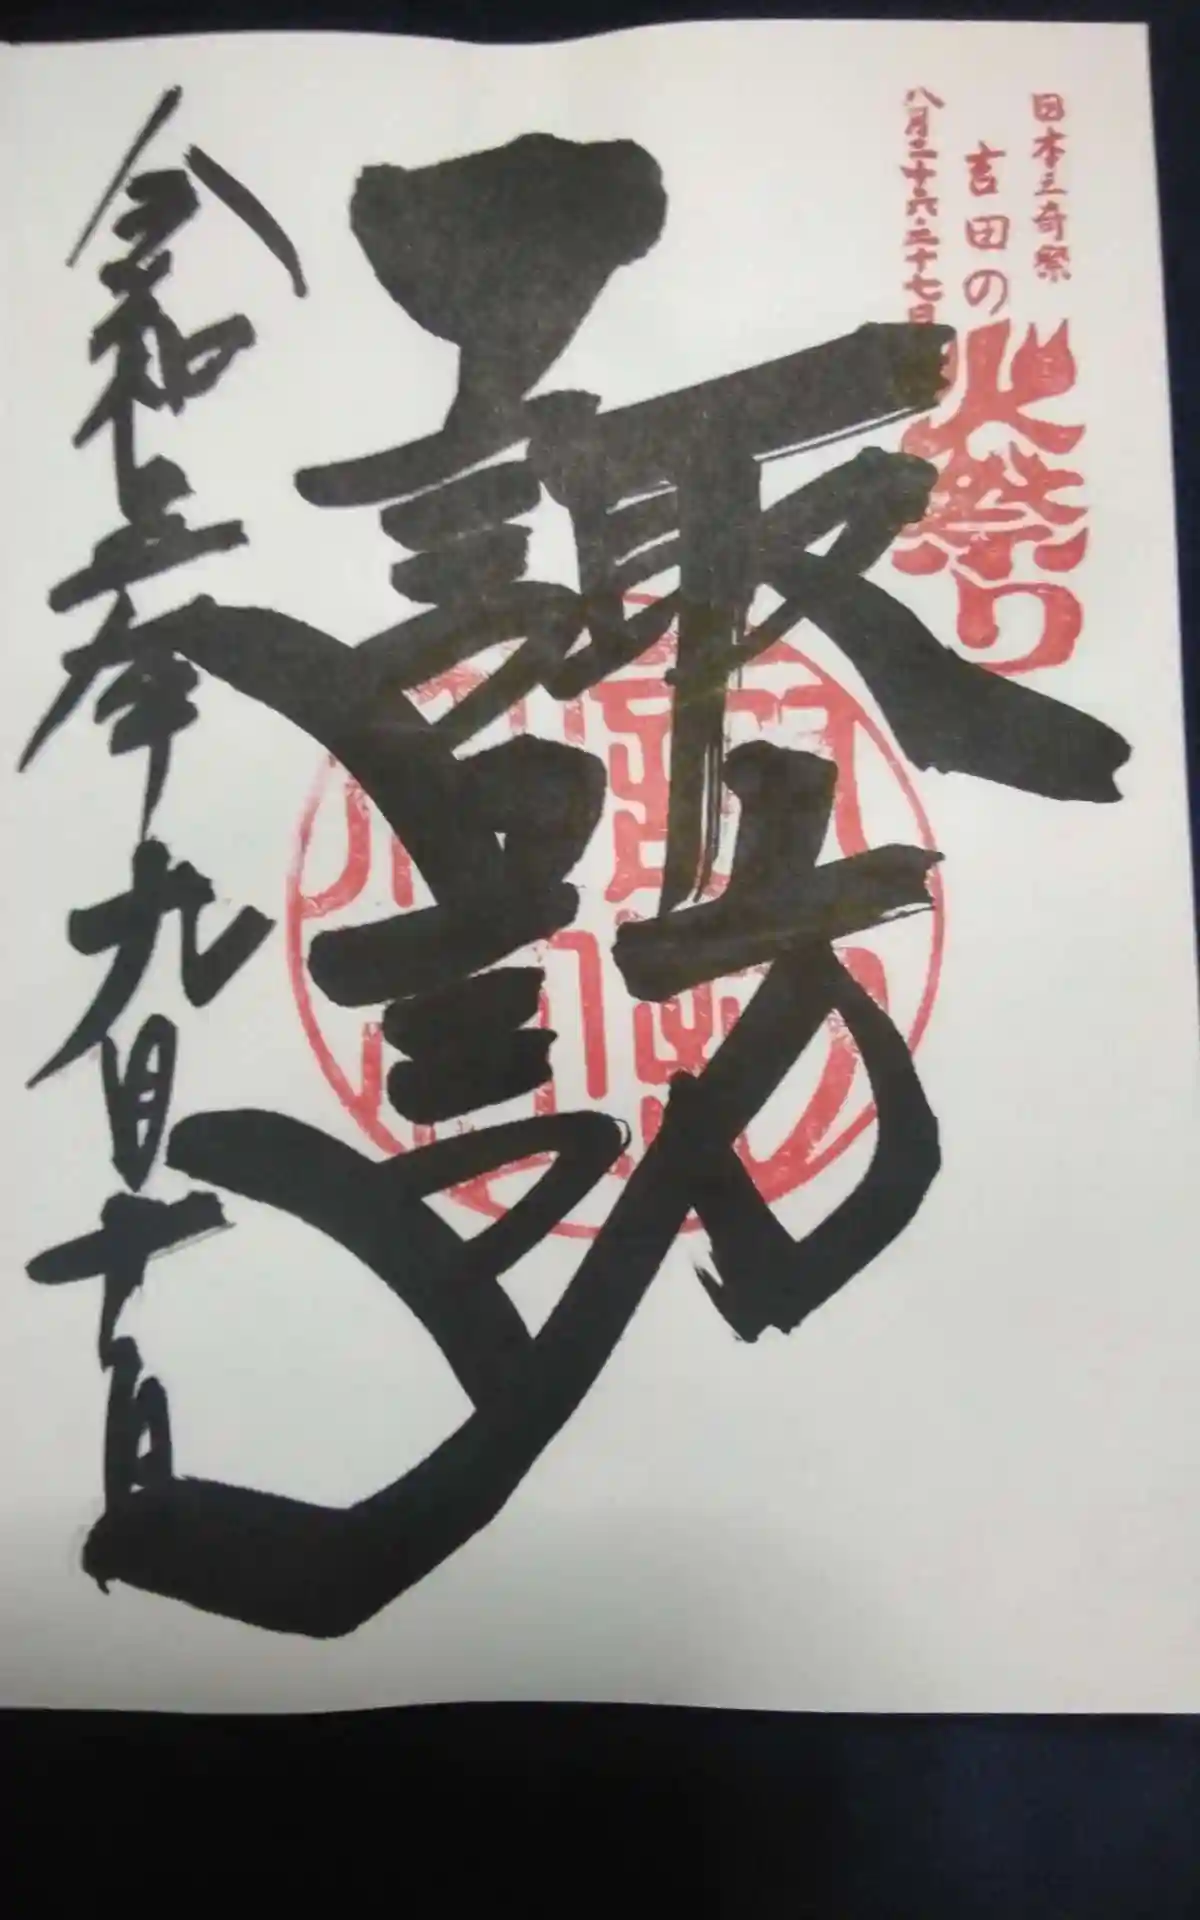 日本三奇祭
吉田の火祭り
八月二十六・二十七日
諏訪
令和五年九月十日